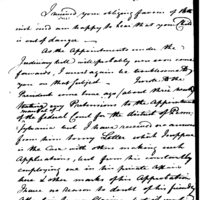 I received your obliging favor of the
inst. and am happy to hear that your Child
is out of danger.
As the Appointments under the
Judiciary bill will probably soon come
forward, I must again be troublesome to
you on that Subject. I wrote the
President some time ago about their
making my Pretensions to the Appointment
of the federal Court for the district of Penn-
sylvania but I have received no answer
from him to my Letter which I suppose
is the Case with other making such
Applications, but from his constantly
employing one in his private affairs
here & other marks of his Approbation
I have no reason to doubt of his friendly